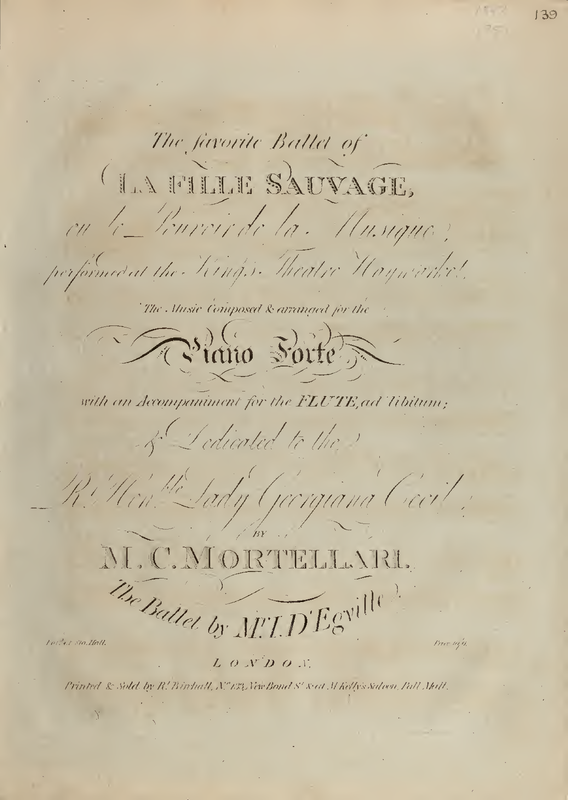 139
The favorite Ballet of
LA FILLE SAUVAGE,
ou le Pouvoir de la Musique,
performed at the Kings Theatre Haymarket.
The Music Composed & arranged for the
Piano Forte
with an Accompaniment for the FLUTE, ad libitum;
& Dedicated to the
Rt. Honble. Lady Georgiana Cecil,
BY
M. C. MORTELLARI.
The Ballet by Mr. I. D'Egville.
Hall.
LONDON,
Printed & Sold by Rt. Birchall, No. 133, New Bond St. & at M Kelly's Saloon, Pall Mall.